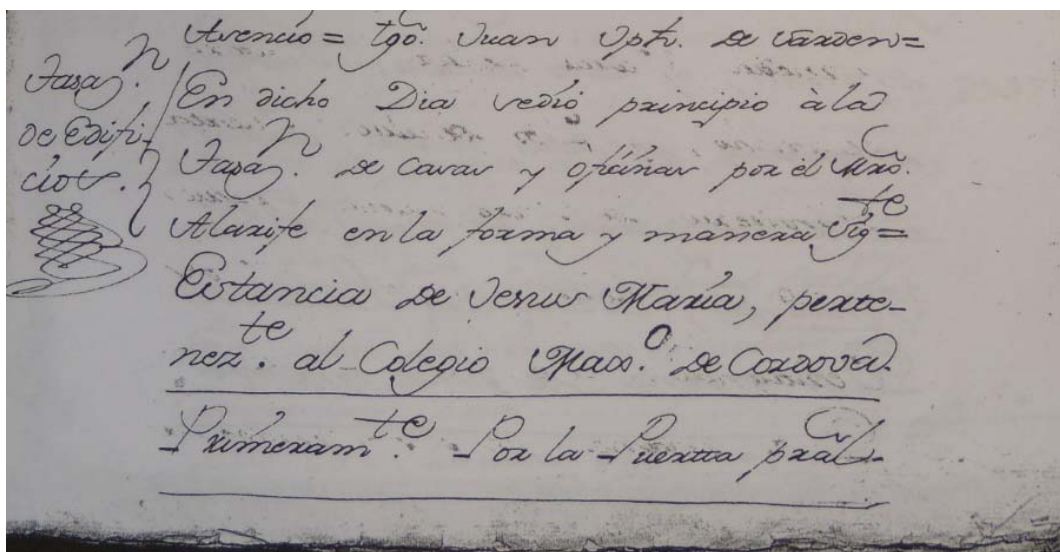 Asencio = tgo. Juan Jph. de Varzen=
Tasazn.
de Edifi-
cios.
En dicho Dia se dió principio à la
Tasazn. de Casas y oficinas por el Mro.
Alarife en la forma y manera Sigte=
Estancia de Jesus Maria, perte-
nezte. al Colegio Maxo. de Cordova.
Primeramte. Por la Puerta pral.